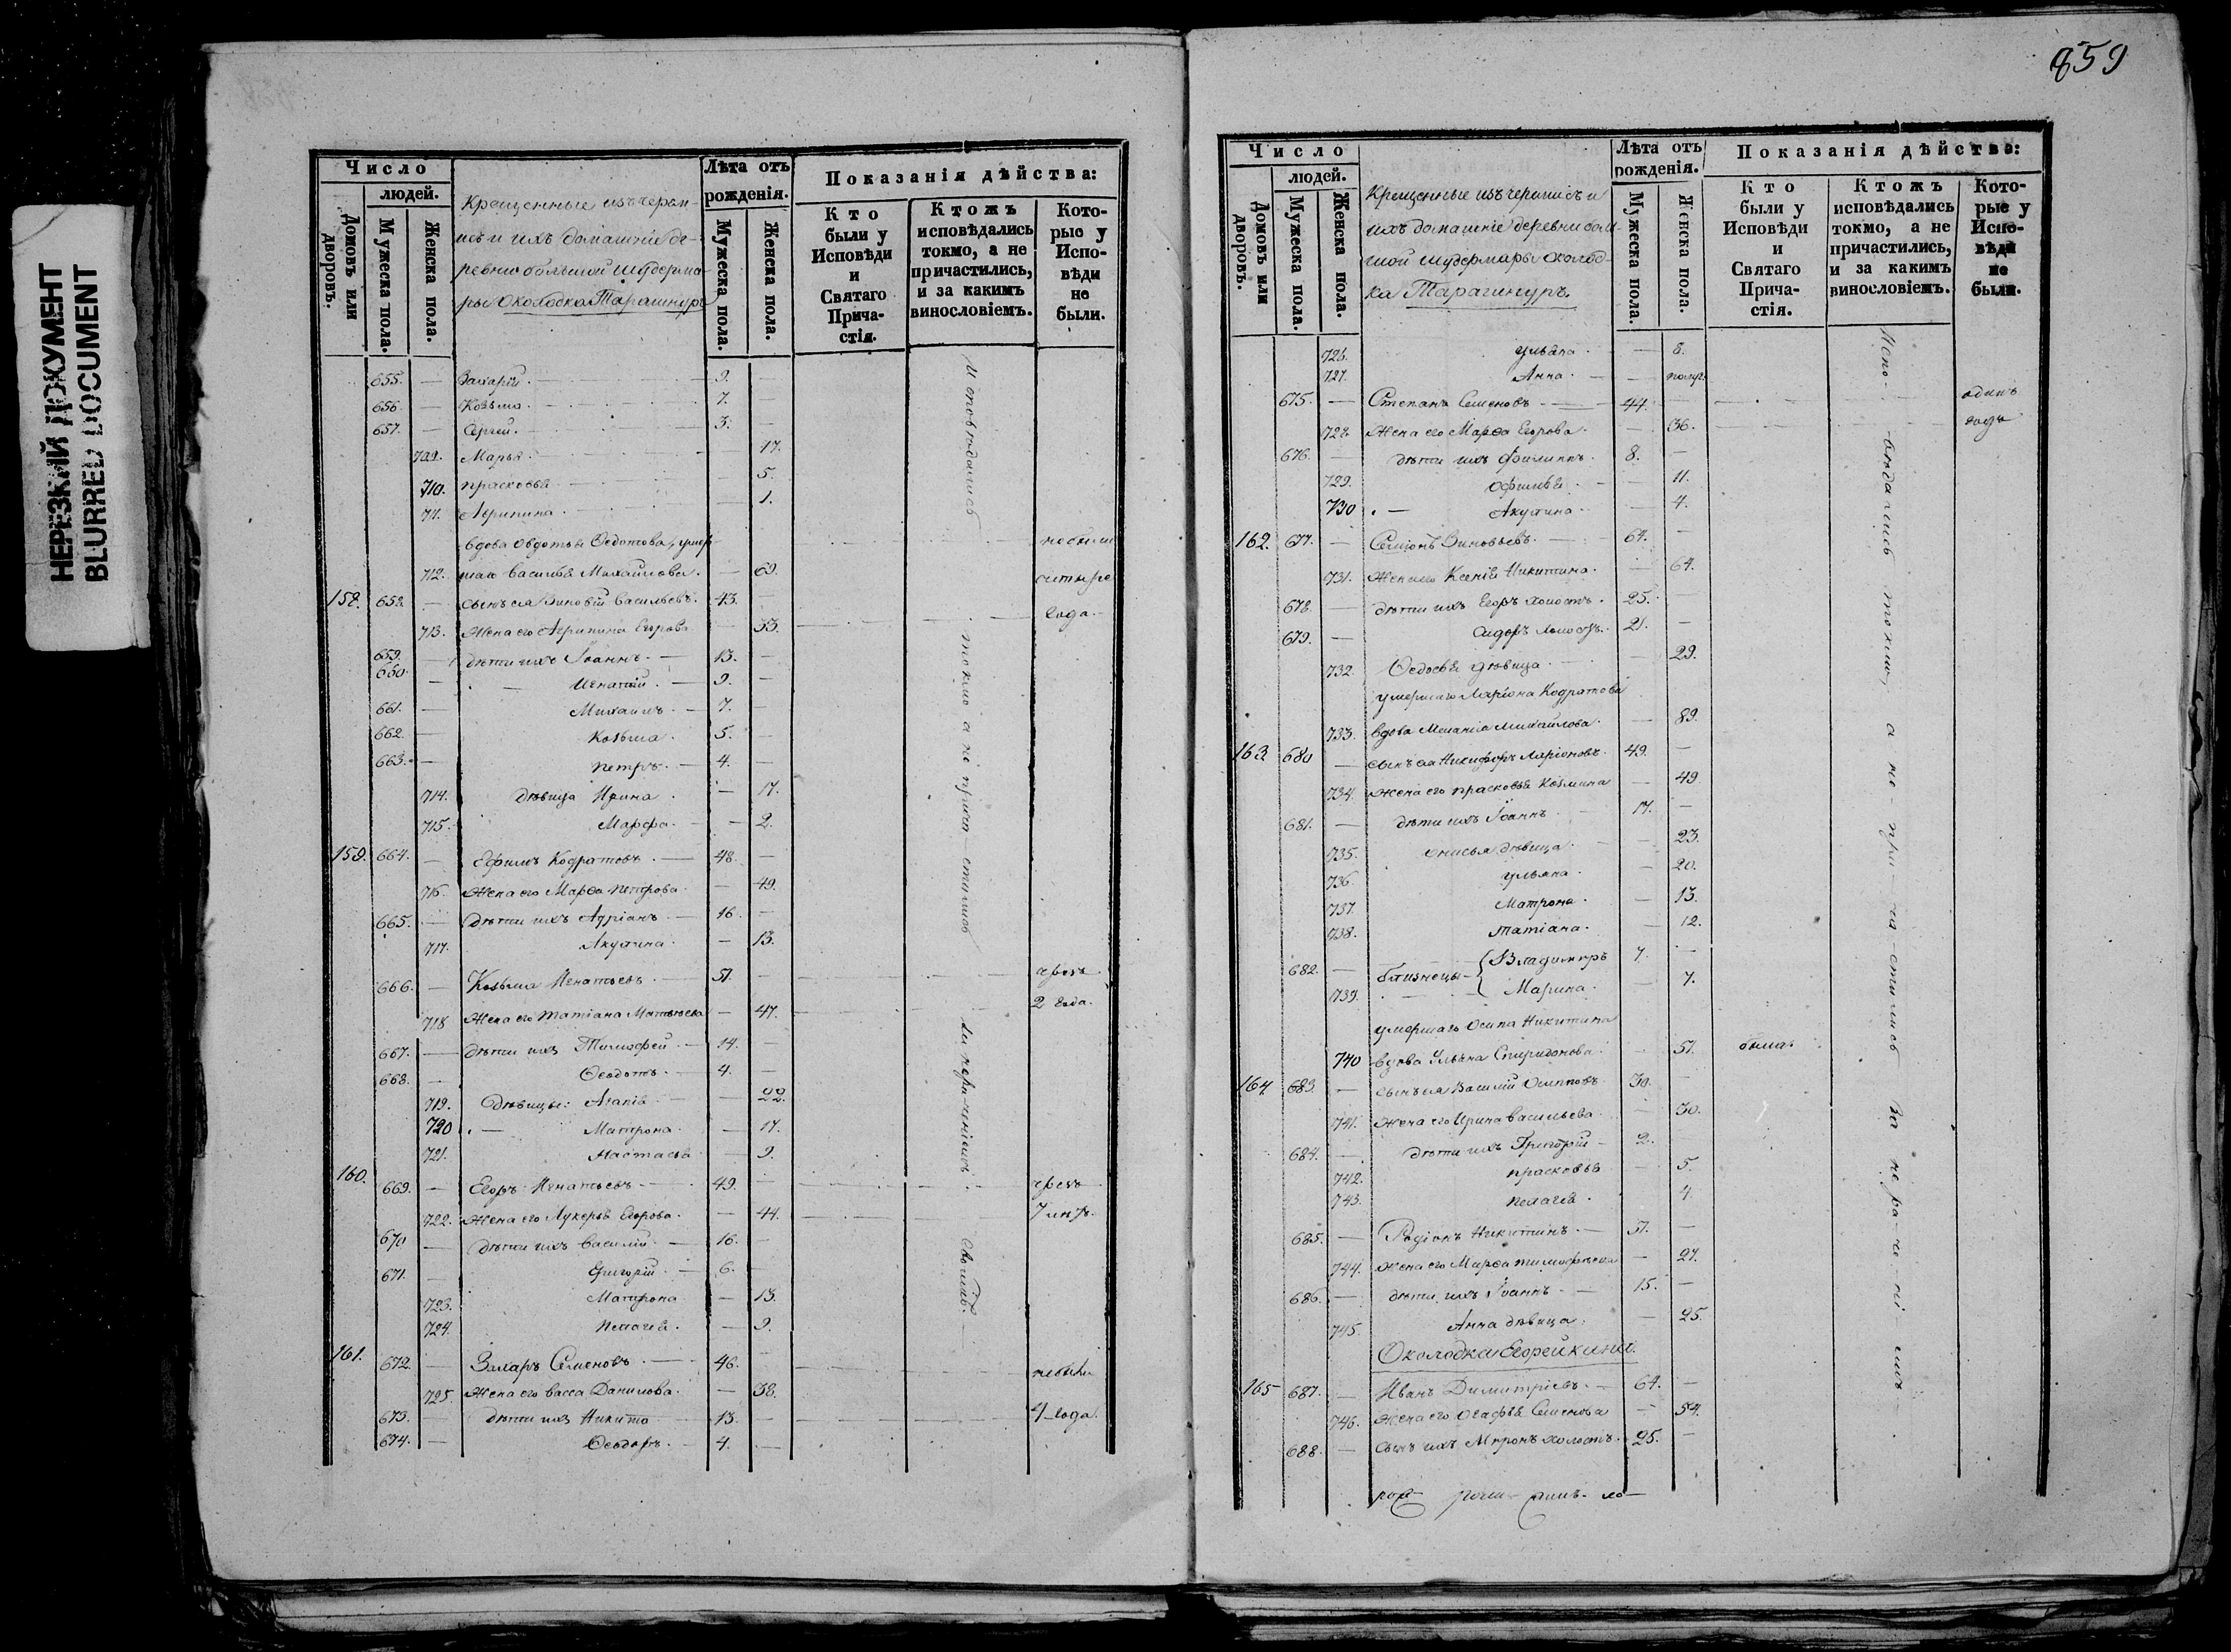 НЕРЕЗКИЙ ДОКУМЕНТ
BLURRED DOCUMENT
859
Число
людей.
Домовъ или дворовъ.
Мужеска пола.
Женска пола.
Крещенные изъ черем-
исъ и ихъ домашніе де-
ревни большой Шудерма-
ры Околодка Тарашнуръ
Лѣта отъ рожденія.
Мужеска пола.
Женска пола.
Показанія дѣйства:
Кто были у Исповѣди и Святаго Прича-стія.
Ктожъ исповѣдались токмо, а не причастились, и за какимъ винословіемъ.
Кото-рые у Испо-вѣди не были.
655. — Захарій. — 9. —
656. — Козьма. — 7. —
657. — Сергій. — 3. —
709. Марья. — 17.
710. Прасковья — 5.
711. Агрипина. — 1.
вдова Овдотья Ѳедотова, умер-
не были
712. шаго Василья Михайлова. — 69.
четыре
158. 658. — сынъ ея Зиновій Васильевъ. 43. —
года.
713. Жена его Агрипина Егорова — 33.
659. — дѣти ихъ Іоаннъ. — 13. —
660. — Игнатій. — 9. —
661. — Михаилъ. — 7. —
662. — Козьма. 5. —
663. — Петръ. — 4. —
714. дѣвица Ирина. — 17.
715. Марфа. — 2.
159. 664. — Ефимъ Кодратовъ. — 48. —
716. Жена его Марѳа Петрова. — 49.
665. — Дѣти ихъ Адріанъ. — 16. —
717. Акулина. — 13.
666. — Козьма Игнатьевъ. — 51. —
чрезъ
2 года.
718 Жена его Татіана Матвѣева — 47.
667. — дѣти ихъ Тимофей. — 14. —
668. — Ѳеодотъ. — 4. —
719. Дѣвицы: Агапія — 22.
720. — Матрона. — 17.
721. Настасья — 9.
160. 669. — Егоръ Игнатьевъ — 49. —
чрезъ
722. Жена его Лукерья Егорова. — 44.
7 лѣтъ.
670 — дѣти ихъ Василій. — 16. —
671. — Григорій. — 6. —
723. Матрона — 13.
724. Пелагея. — 9.
161. 672. — Захаръ Семеновъ. — 46. —
не былъ
725. Жена его Васса Данилова. — 38.
673. — дѣти ихъ Никита — 13. —
4 года.
674. — Ѳеодоръ. — 4. —
Исповѣдались токмо а не прича-стились за нераченіемъ своимъ.
Число
людей.
Домовъ или дворовъ.
Мужеска пола.
Женска пола.
Крещенные изъ черемисъ и
ихъ домашніе деревни боль-
шой Шудермары околод-
ка Тарашнуръ.
Лѣта отъ рожденія.
Мужеска пола.
Женска пола.
Показанія дѣйства:
Кто были у Исповѣди и Святаго Прича-стія.
Ктожъ исповѣдались токмо, а не причастились, и за какимъ винословіемъ.
Кото-рые у Испо-вѣди не были.
726. Ульяна. — 8.
727. Анна. — полуг.
675. — Степанъ Семеновъ — 44. —
одинъ
728. Жена его Марѳа Егорова. — 36.
годъ
676. — дѣти ихъ Филиппъ. 8. —
729. Офимья. — 11.
730 . — Акулина — 4.
162. 677. — Семіонъ Зиновьевъ. — 64. —
731. Жена его Ксенія Никитина. — 64.
678. — дѣти ихъ Егоръ холостъ. 25. —
679. — Сидоръ холостъ. 21. —
732. Ѳедосья дѣвица. — 29.
умершаго Ларіона Кодратова
733. вдова Меланія Михайлова. — 89.
163 680 — сынъ ея Никифоръ Ларіоновъ. 49. —
734. Жена его Прасковья Козмина — 49
681. — дѣти ихъ Іоаннъ. 17. —
735. Анисья дѣвица. — 23.
736. Ульяна. — 20.
737. Матрона. — 13.
738. Татіана. — 12.
682. — близнецы — { Владимиръ 7. —
739. Марина. — 7.
умершаго Осипа Никитина
740 вдова Ульяна Спиридонова. — 51. была.
164 683. — сынъ ея Василій Осиповъ. 30. —
741. Жена его Ирина Васильева. — 30.
684. — дѣти ихъ Григорій — 2. —
742. Прасковья — 5.
743. Пелагея. — 4.
685. — Родіонъ Никитинъ. — 51. —
744. Жена его Марѳа Тимофеева — 27.
686. — дѣти ихъ Іоаннъ. — 15. —
745. Анна дѣвица. — 25.
Околодка Егорейкина.
165 687. — Иванъ Димитріевъ. — 64. —
746. Жена его Огафья Семенова — 54.
688. — Сынъ ихъ Миронъ холостъ. 25. —
Испо-вѣдались токмо, а не-при-ча-стились за не ра-че-ні емъ